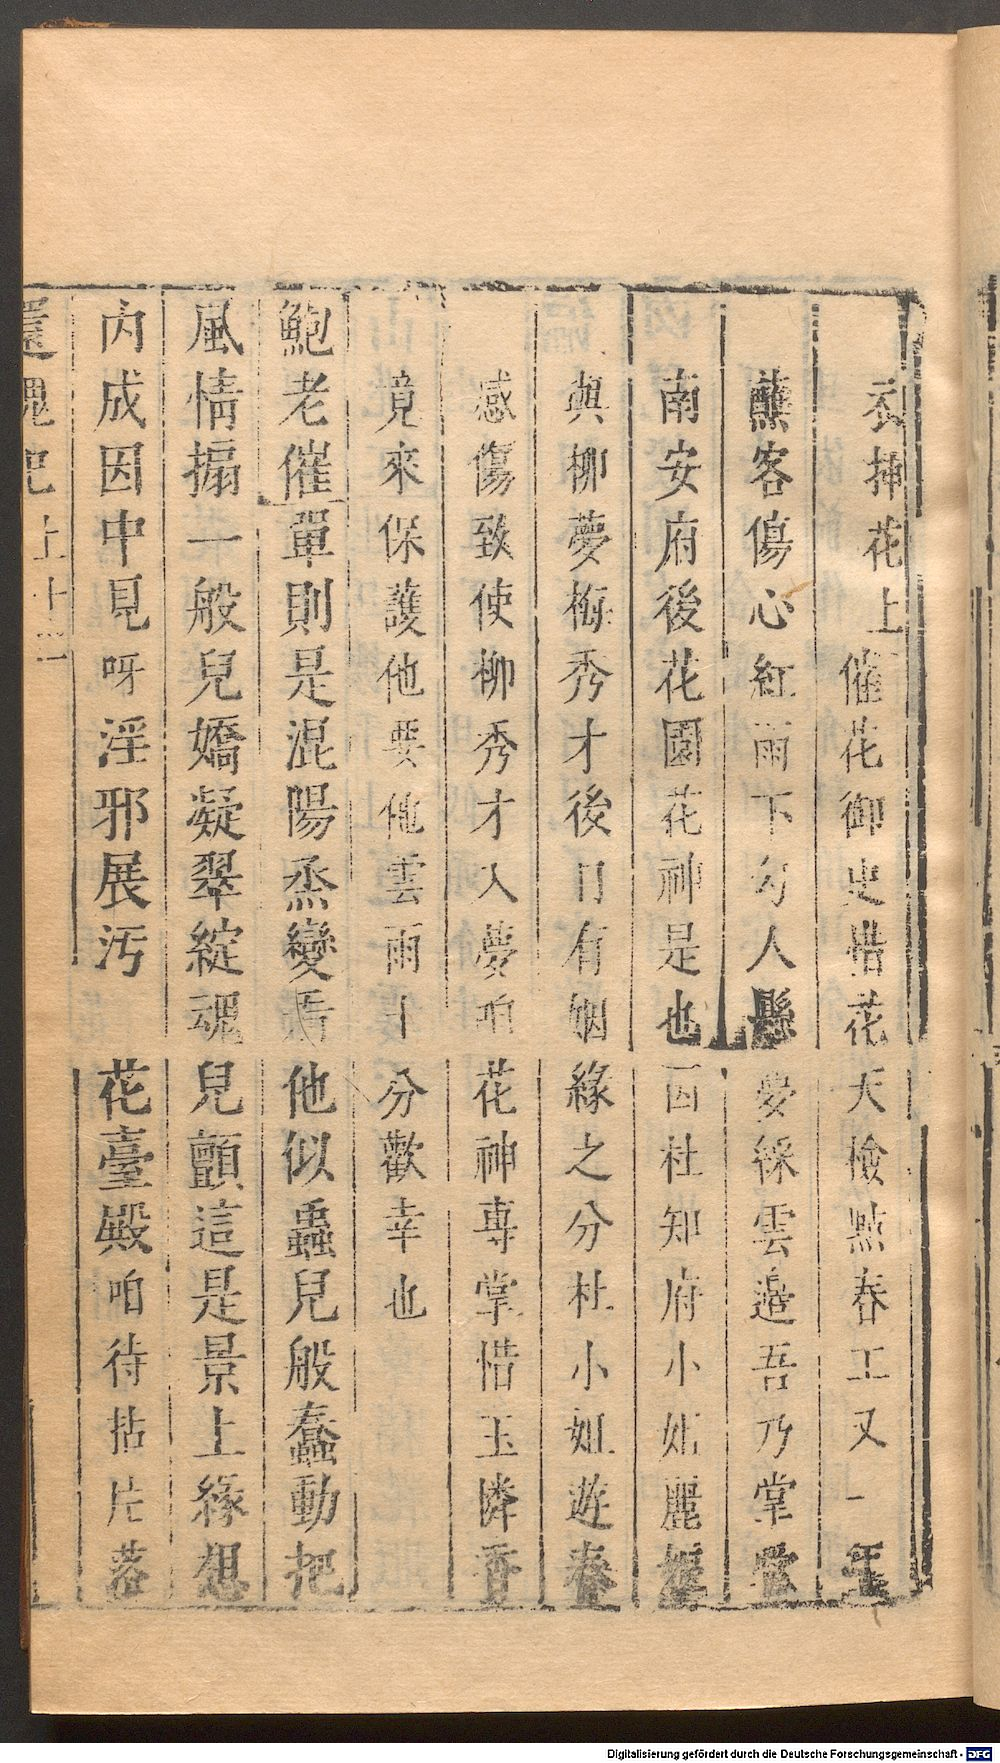 衣插花上催花御史惜花天檢點春工又一年
蘸客傷心紅雨下勾人懸夢綵雲邊吾乃掌管
南安府後花園花神是也因杜知府小姐麗娘
與柳夢梅秀才後日有姻緣之分杜小姐遊春
感傷致使柳秀才入夢咱花神專掌惜玉憐香
竟來保護他要他雲雨十分歡幸也
鮑老催單則是混陽烝變看他似蟲兒般蠢動把
風情搧一般兒嬌凝翠綻魂兒顫這是景上緣想
內成因中見呀淫邪展汚花臺殿咱待拈片落
還魂記上十二
Digitalisierung gefördert durch die Deutsche Forschungsgemeinschaft - DFG